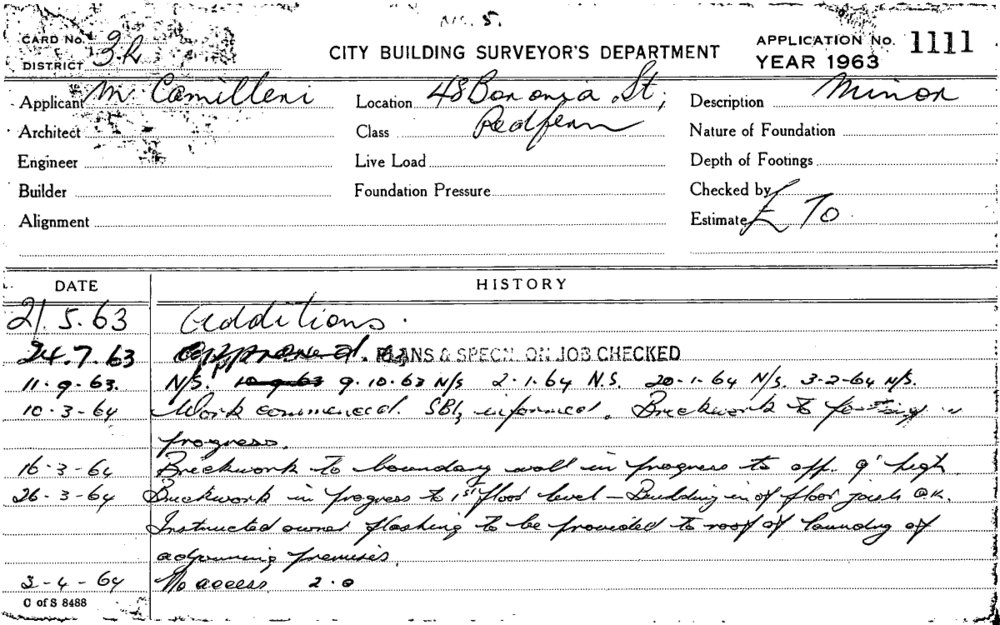 No. 5.
CARD No.
DISTRICT
CITY BUILDING SURVEYOR'S DEPARTMENT
APPLICATION No. 1111
YEAR 1963
Applicant M Camilleri
Location 48 Bononia St,
Description Minor
Architect
Class Redfern
Nature of Foundation
Engineer
Live Load
Depth of Footings
Builder
Foundation Pressure
Checked by
Alignment
Estimate £ 70
DATE
HISTORY
21.5.63 Additions.
24.7.63 approved. PLANS & SPECN. ON JOB CHECKED
11-9-63. N/S. 10-9-63 9-10-63 N/S 2-1-64 N.S. 20-1-64 N/S. 3-2-64 N/S.
10-3-64 Work commenced. SBI, informed. Brickwork to footing in
progress.
16-3-64 Brickwork to boundary wall in progress to app. 9' high
26-3-64 Brickwork in progress to 1st floor level - Building in of floor joists OK.
Instructed owner flashing to be provided to roof of laundry of
adjoining premises.
3-4-64 No access 2.0
C of S 8488